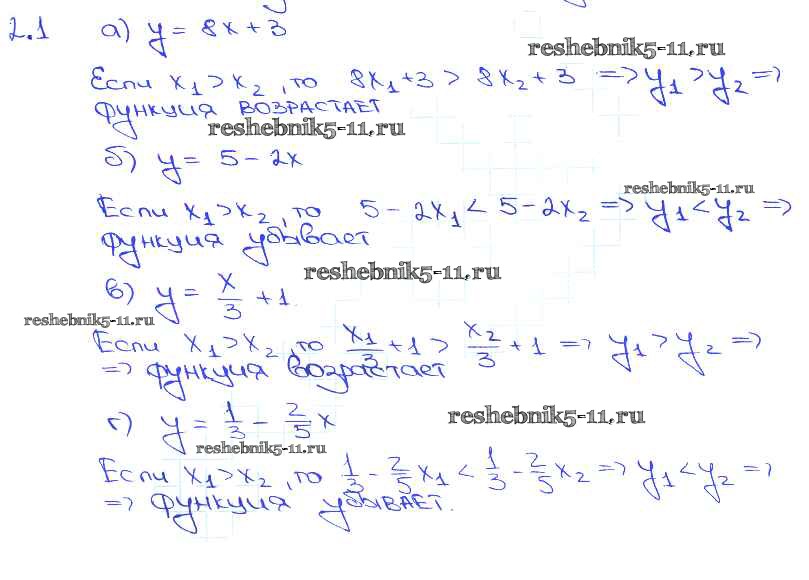 2.1 а) y = 8x + 3
reshebnik5-11.ru
Если x₁ > x₂, то 8x₁ + 3 > 8x₂ + 3 => y₁ > y₂ =>
функция возрастает
reshebnik5-11.ru
б) y = 5 - 2x
reshebnik5-11.ru
Если x₁ > x₂, то 5 - 2x₁ < 5 - 2x₂ => y₁ < y₂ =>
функция убывает
reshebnik5-11.ru
в) y = x/3 + 1.
reshebnik5-11.ru
Если x₁ > x₂, то x₁/3 + 1 > x₂/3 + 1 => y₁ > y₂ =>
=> функция возрастает
г) y = 1/3 - 2/5 x
reshebnik5-11.ru
reshebnik5-11.ru
Если x₁ > x₂, то 1/3 - 2/5 x₁ < 1/3 - 2/5 x₂ => y₁ < y₂ =>
=> функция убывает.